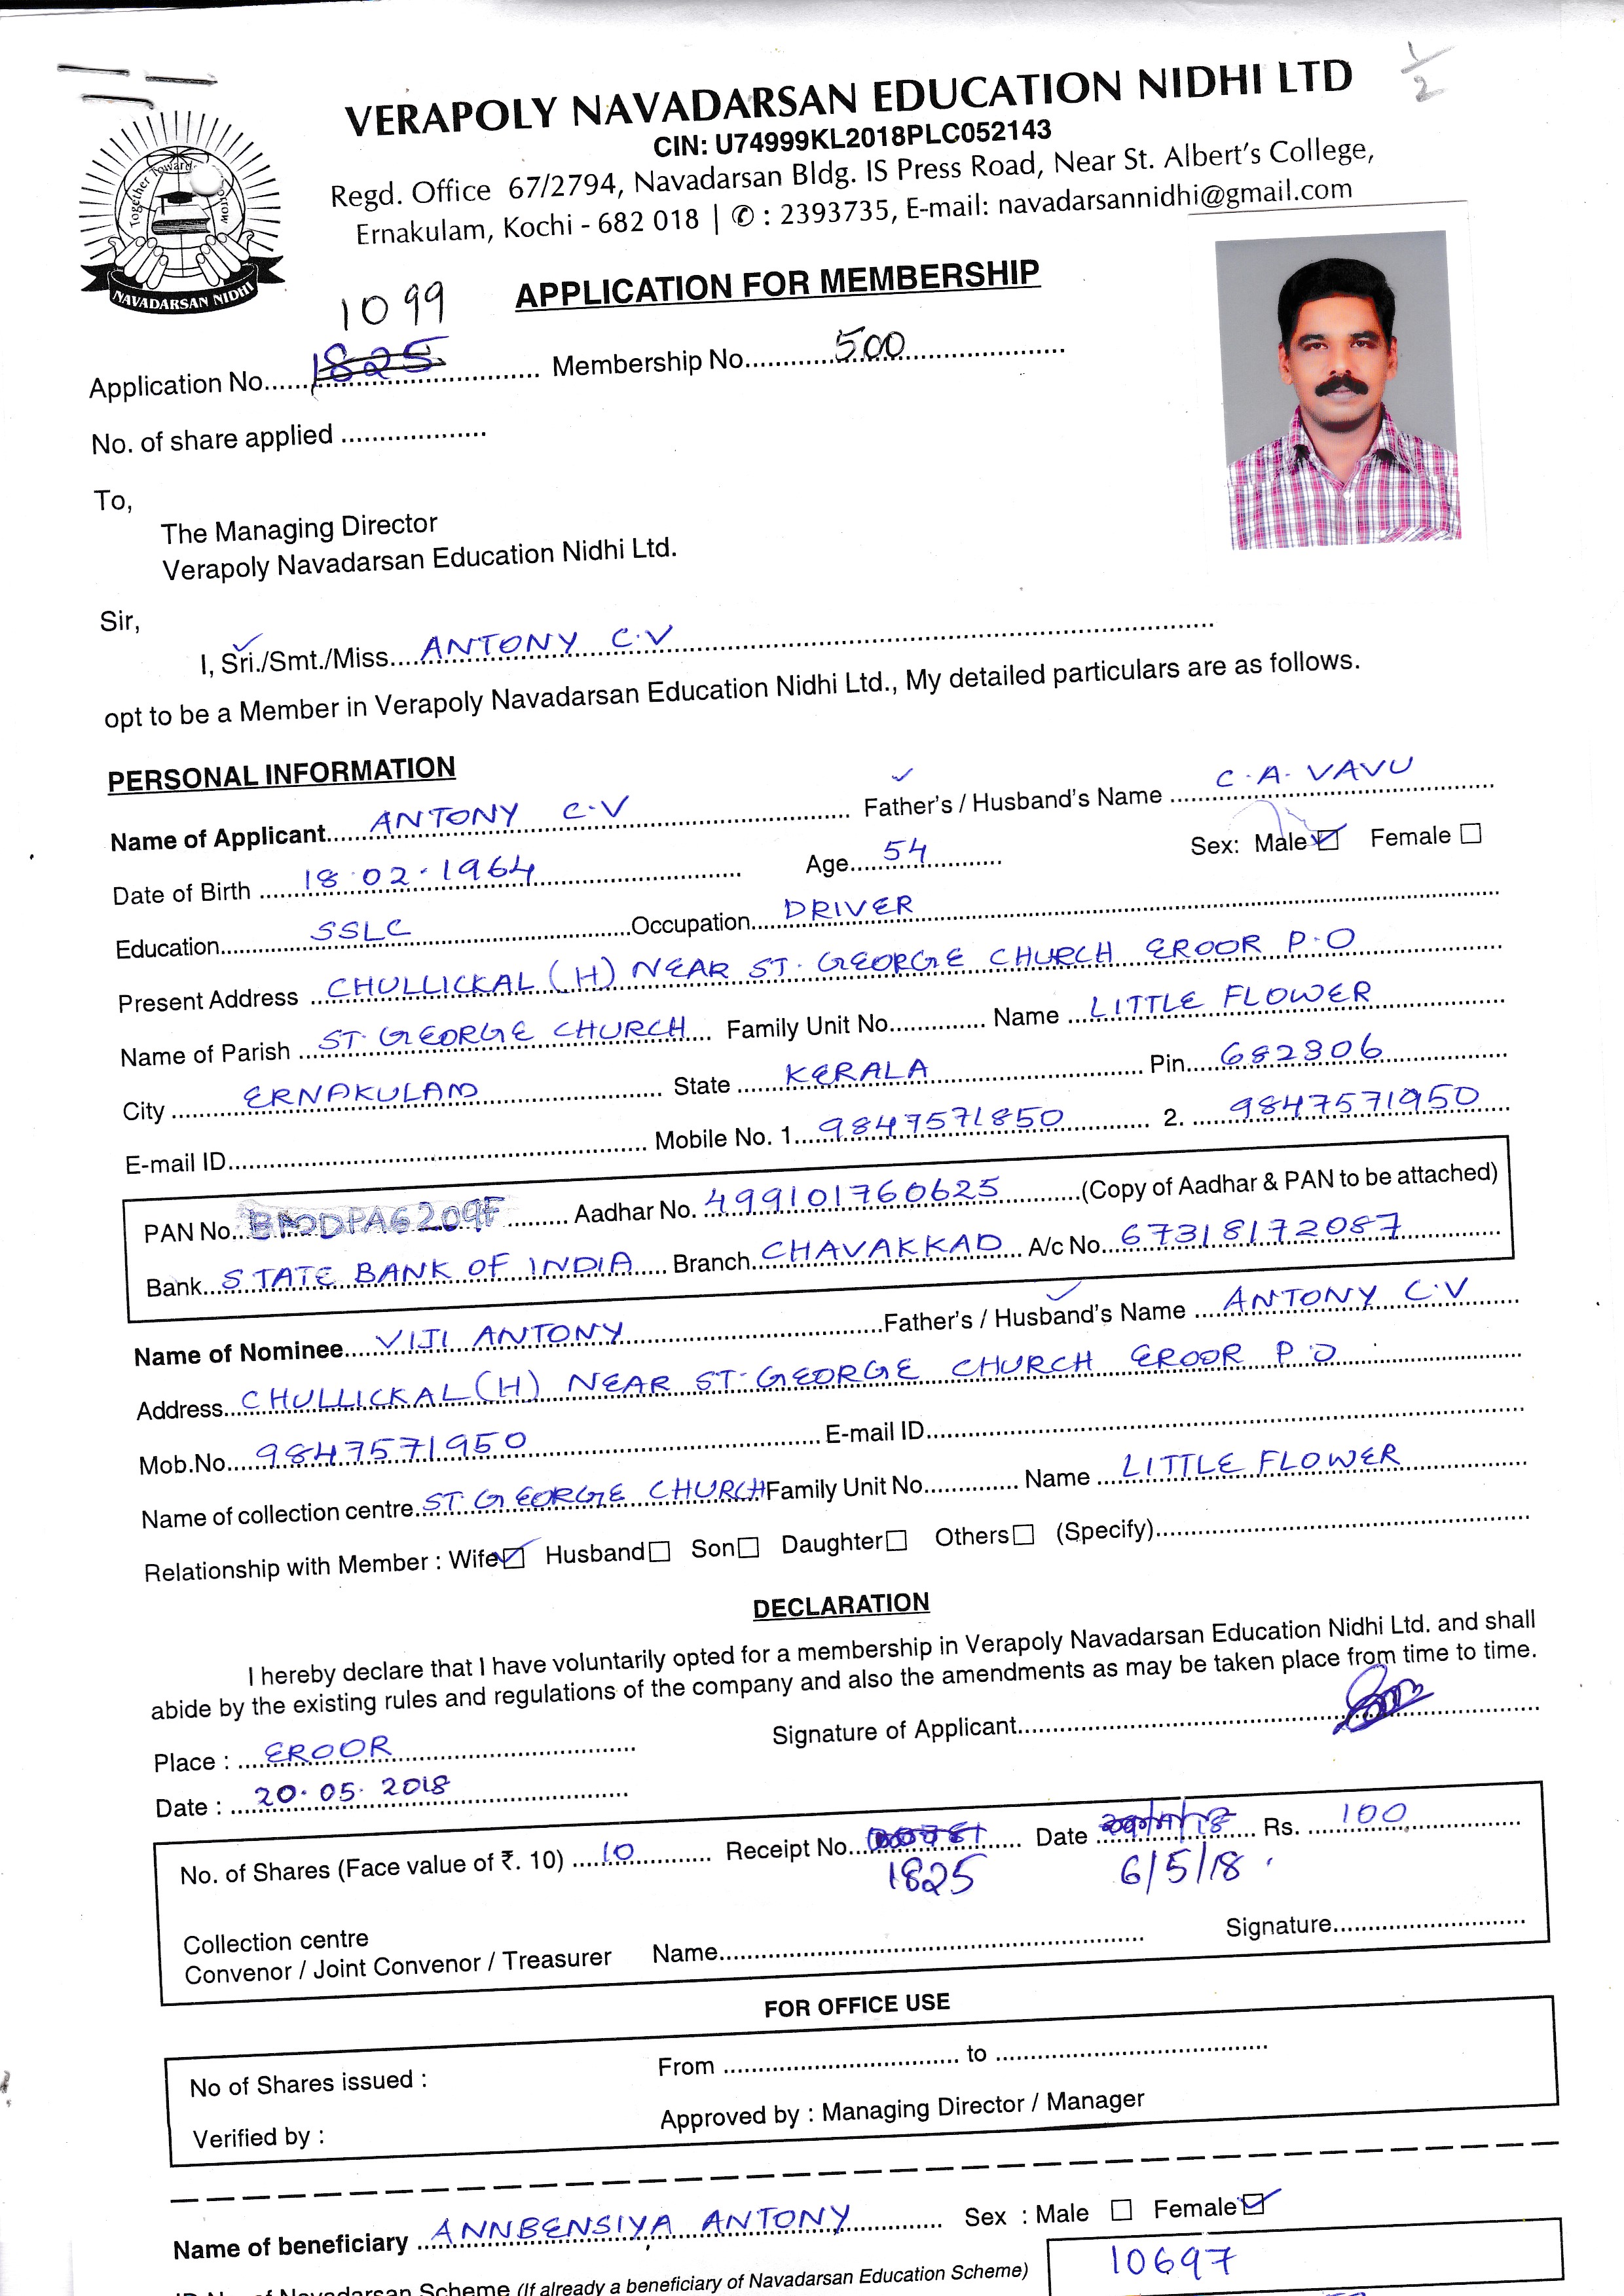 1/2
VERAPOLY NAVADARSAN EDUCATION NIDHI LTD
CIN: U74999KL2018PLC052143
Regd. Office 67/2794, Navadarsan Bldg. IS Press Road, Near St. Albert's College,
Ernakulam, Kochi - 682 018 | ✆ : 2393735, E-mail: navadarsannidhi@gmail.com
Together Towards
NAVADARSAN NIDHI
APPLICATION FOR MEMBERSHIP
1099
Application No. 1825 Membership No. 500
No. of share applied
To,
The Managing Director
Verapoly Navadarsan Education Nidhi Ltd.
Sir,
I, Sri./Smt./Miss. ANTONY C.V
opt to be a Member in Verapoly Navadarsan Education Nidhi Ltd., My detailed particulars are as follows.
PERSONAL INFORMATION
Name of Applicant ANTONY C.V Father's / Husband's Name C.A. VAVU
Date of Birth 18.02.1964 Age 54 Sex: Male ☑ Female ☐
Education SSLC Occupation DRIVER
Present Address CHULLICKAL (H) NEAR ST. GEORGE CHURCH EROOR P.O
Name of Parish ST. GEORGE CHURCH Family Unit No. Name LITTLE FLOWER
City ERNAKULAM State KERALA Pin 682306
E-mail ID Mobile No. 1. 9847571850 2. 9847571950
PAN No. Aadhar No. 499101760625 (Copy of Aadhar & PAN to be attached)
Bank STATE BANK OF INDIA Branch CHAVAKKAD A/c No. 67318172087
Name of Nominee VIJI ANTONY Father's / Husband's Name ANTONY C.V
Address CHULLICKAL (H) NEAR ST. GEORGE CHURCH EROOR P.O
Mob.No. 9847571950 E-mail ID
Name of collection centre ST. GEORGE CHURCH Family Unit No. Name LITTLE FLOWER
Relationship with Member : Wife ☑ Husband ☐ Son ☐ Daughter ☐ Others ☐ (Specify)
DECLARATION
I hereby declare that I have voluntarily opted for a membership in Verapoly Navadarsan Education Nidhi Ltd. and shall
abide by the existing rules and regulations of the company and also the amendments as may be taken place from time to time.
Signature of Applicant
Place : EROOR
Date : 20.05.2018
No. of Shares (Face value of ₹. 10) 10 Receipt No. Date Rs. 100
1825 6/5/18
Collection centre
Convenor / Joint Convenor / Treasurer Name Signature
FOR OFFICE USE
No of Shares issued : From to
Verified by : Approved by : Managing Director / Manager
Name of beneficiary ANNBENSIYA ANTONY Sex : Male ☐ Female ☑
Navadarsan Scheme (If already a beneficiary of Navadarsan Education Scheme) 10697